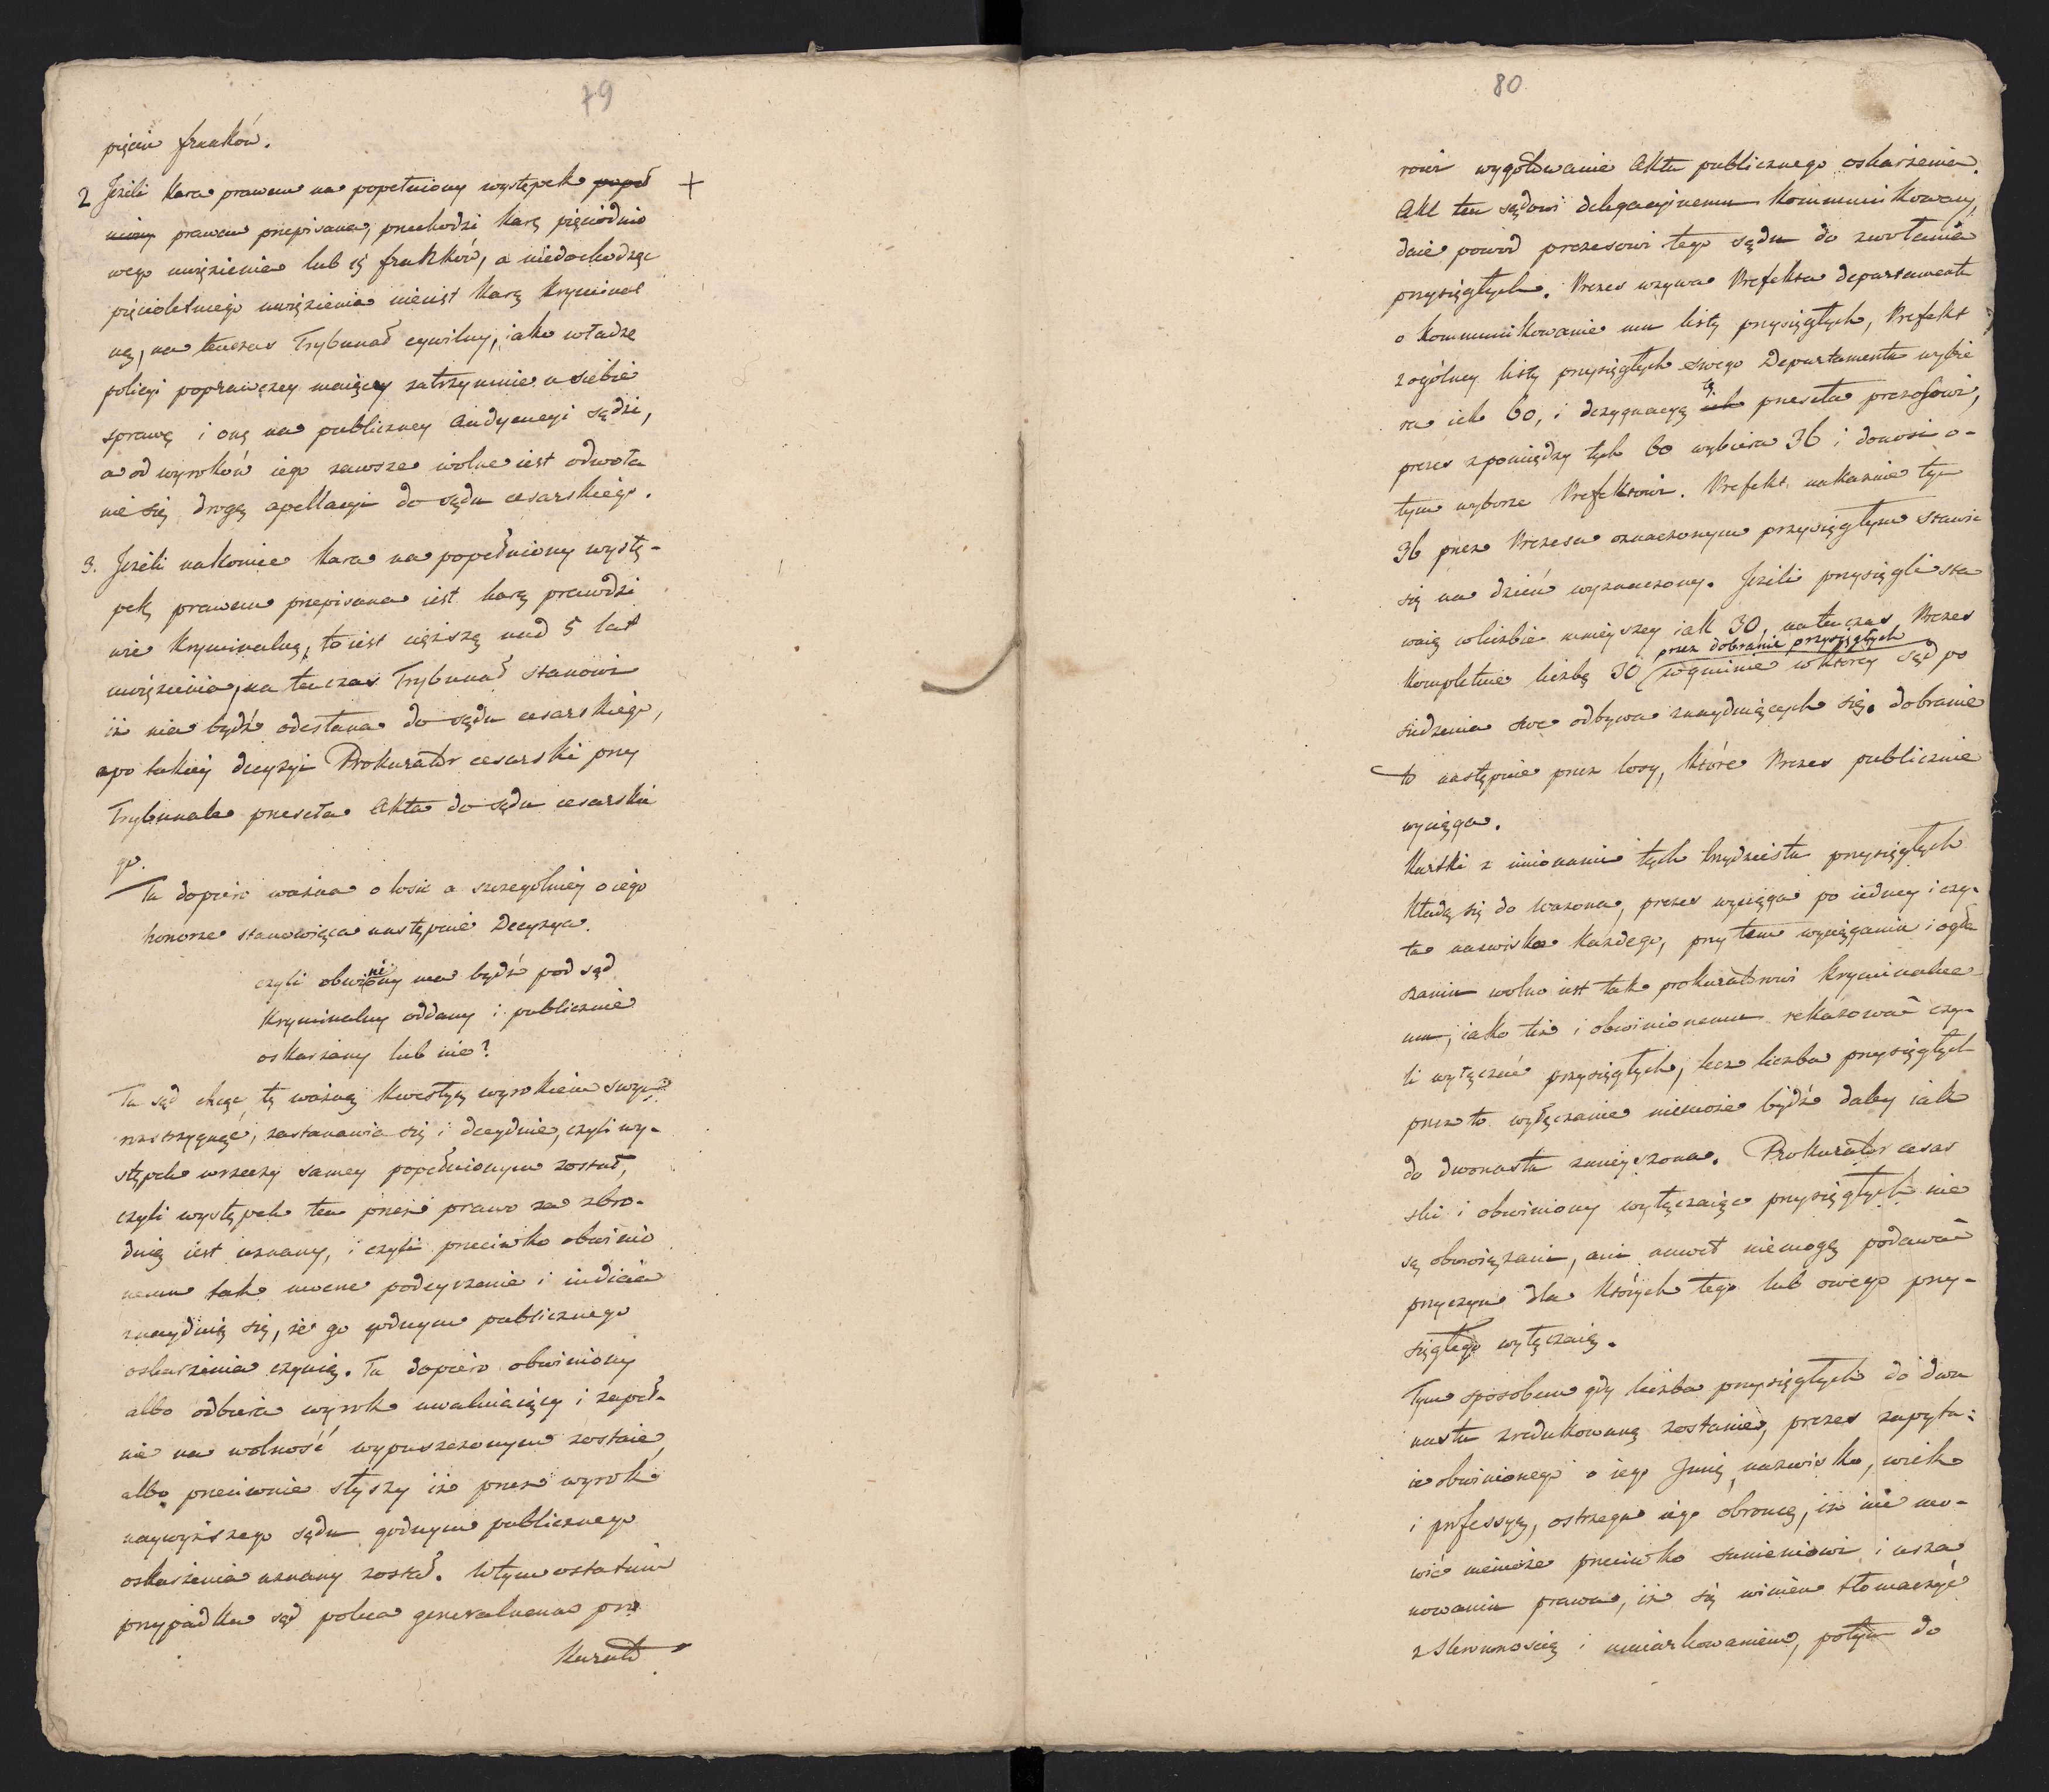 79
pięciu franków.
2 Jeżeli kara prawem na popełniony występek popeł +
niony prawem przepisana, przechodzi karę pięciodnio
wego uwięzienia lub 15 franków, a niedochodząc
pięcioletniego uwięzienia nieiest karą kryminal
ną, na tenczas Trybunał cywilny, iako władze
policyi poprawczey maiący zatrzymuie u siebie
sprawę i onę na publiczney Audyencyi sądzi,
a od wyroków iego zawsze wolne iest odwoła
nie się drogą apellacyi do sądu cesarskiego.
3. Jeżeli nakoniec kara na popełniony wystę-
pek prawem przepisana iest karą prawdzi
wie kryminalną, to iest cięższą nad 5 lat
uwięzienia, na tenczas Trybunał stanowi
iż ma bydź odesłana do sądu cesarskiego,
a po takiéy decyzyi Prokurator cesarski przy
Trybunale przeseła Akta do sądu cesarskie
go.
Tu dopiéro ważna o losie a szczególniey o iego
honorze stanowiąca następuie Decyzya.
czyli obwiniony ma bydź pod sąd
kryminalny oddany i publicznie
oskarżany lub nie?
Tu sąd chcąc tę ważną kwestyą wyrokiem swym
rozstrzygnąć, zastanawia się i decyduie, czyli wy-
stępek w rzeczy samey popełnionym został,
czyli występek ten przez prawo za zbro-
dnią iest uznany, i czyli przeciwko obwinio
nemu tak mocne podeyrzenie i indicia
znayduią się, że go godnym publicznego
oskarżenia czynią. Tu dopiéro obwiniony
albo odbiera wyrok uwalniaiący i zapeł-
nie na wolność wypuszczonym zostaie,
albo przeciwnie słyszy iż przez wyrok
naywyższego sądu godnym publicznego
oskarżenia uznany został. W tym ostatnim
przypadku sąd poleca generalnemu pro
kurato
80
rowi wygotowanie Aktu publicznego oskarżenia.
Akt ten sądowi delegacyinemu kommunikowany,
daie powód prezesowi tego sądu do zwołania
przysięgłych. Prezes wzywa Prefekta departamentu
o kommunikowanie mu listy przysięgłych, Prefekt
z ogólney listy przysięgłych swego Departamentu wybie
ra ich 60, i dezygnacyą tę ich przeseła prezesowi,
prezes z pomiędzy tych 60 wybiera 36 i donosi o-
tym wyborze Prefektowi. Prefekt nakazuie tym
36 przez Prezesa oznaczonym przysięgłym stawić
się na dzień wyznaczony. Jeżeli przysięgli sta
waią w liczbie mnieyszey iak 30, na tenczas Prezes
przez dobranie przysięgłych
kompletuie liczbę 30 w gminie w którey sąd po
siedzenia swe odbywa znayduiących się. dobranie
to następuie przez losy, które Prezes publicznie
wyciąga.
Kartki z imionami tych trzydziestu przysięgłych
kładą się do wazonu, prezes wyciąga po iedney i czy-
ta nazwiska każdego, przy tem wyciąganiu i ogła
szaniu wolno iest tak prokuratorowi kryminalne
mu, iako też i obwinionemu rekuzować czy-
li wyłączać przysięgłych, lecz liczba przysięgłych
przez to wyłączanie niemoże bydź daley iak
do dwunastu zmnieyszona. Prokurator cesar
ski i obwiniony wyłączaiąc przysięgłych nie
są obowiązani, ani nawet niemogą podawać
przyczyn dla których tego lub owego przy-
sięgłego wyłączaią.
Tym sposobem gdy liczba przysięgłych do dwu
nastu zredukowaną zostanie, prezes zapytu-
ie obwinionego o iego Jmię, nazwisko, wiek
i professyą, ostrzega iego obrońcę, iż nic mó-
wić niemoże przeciwko sumieniowi i usza
nowaniu prawa, iż się winien tłomaczyć
z skromnością i umiarkowaniem, potym do